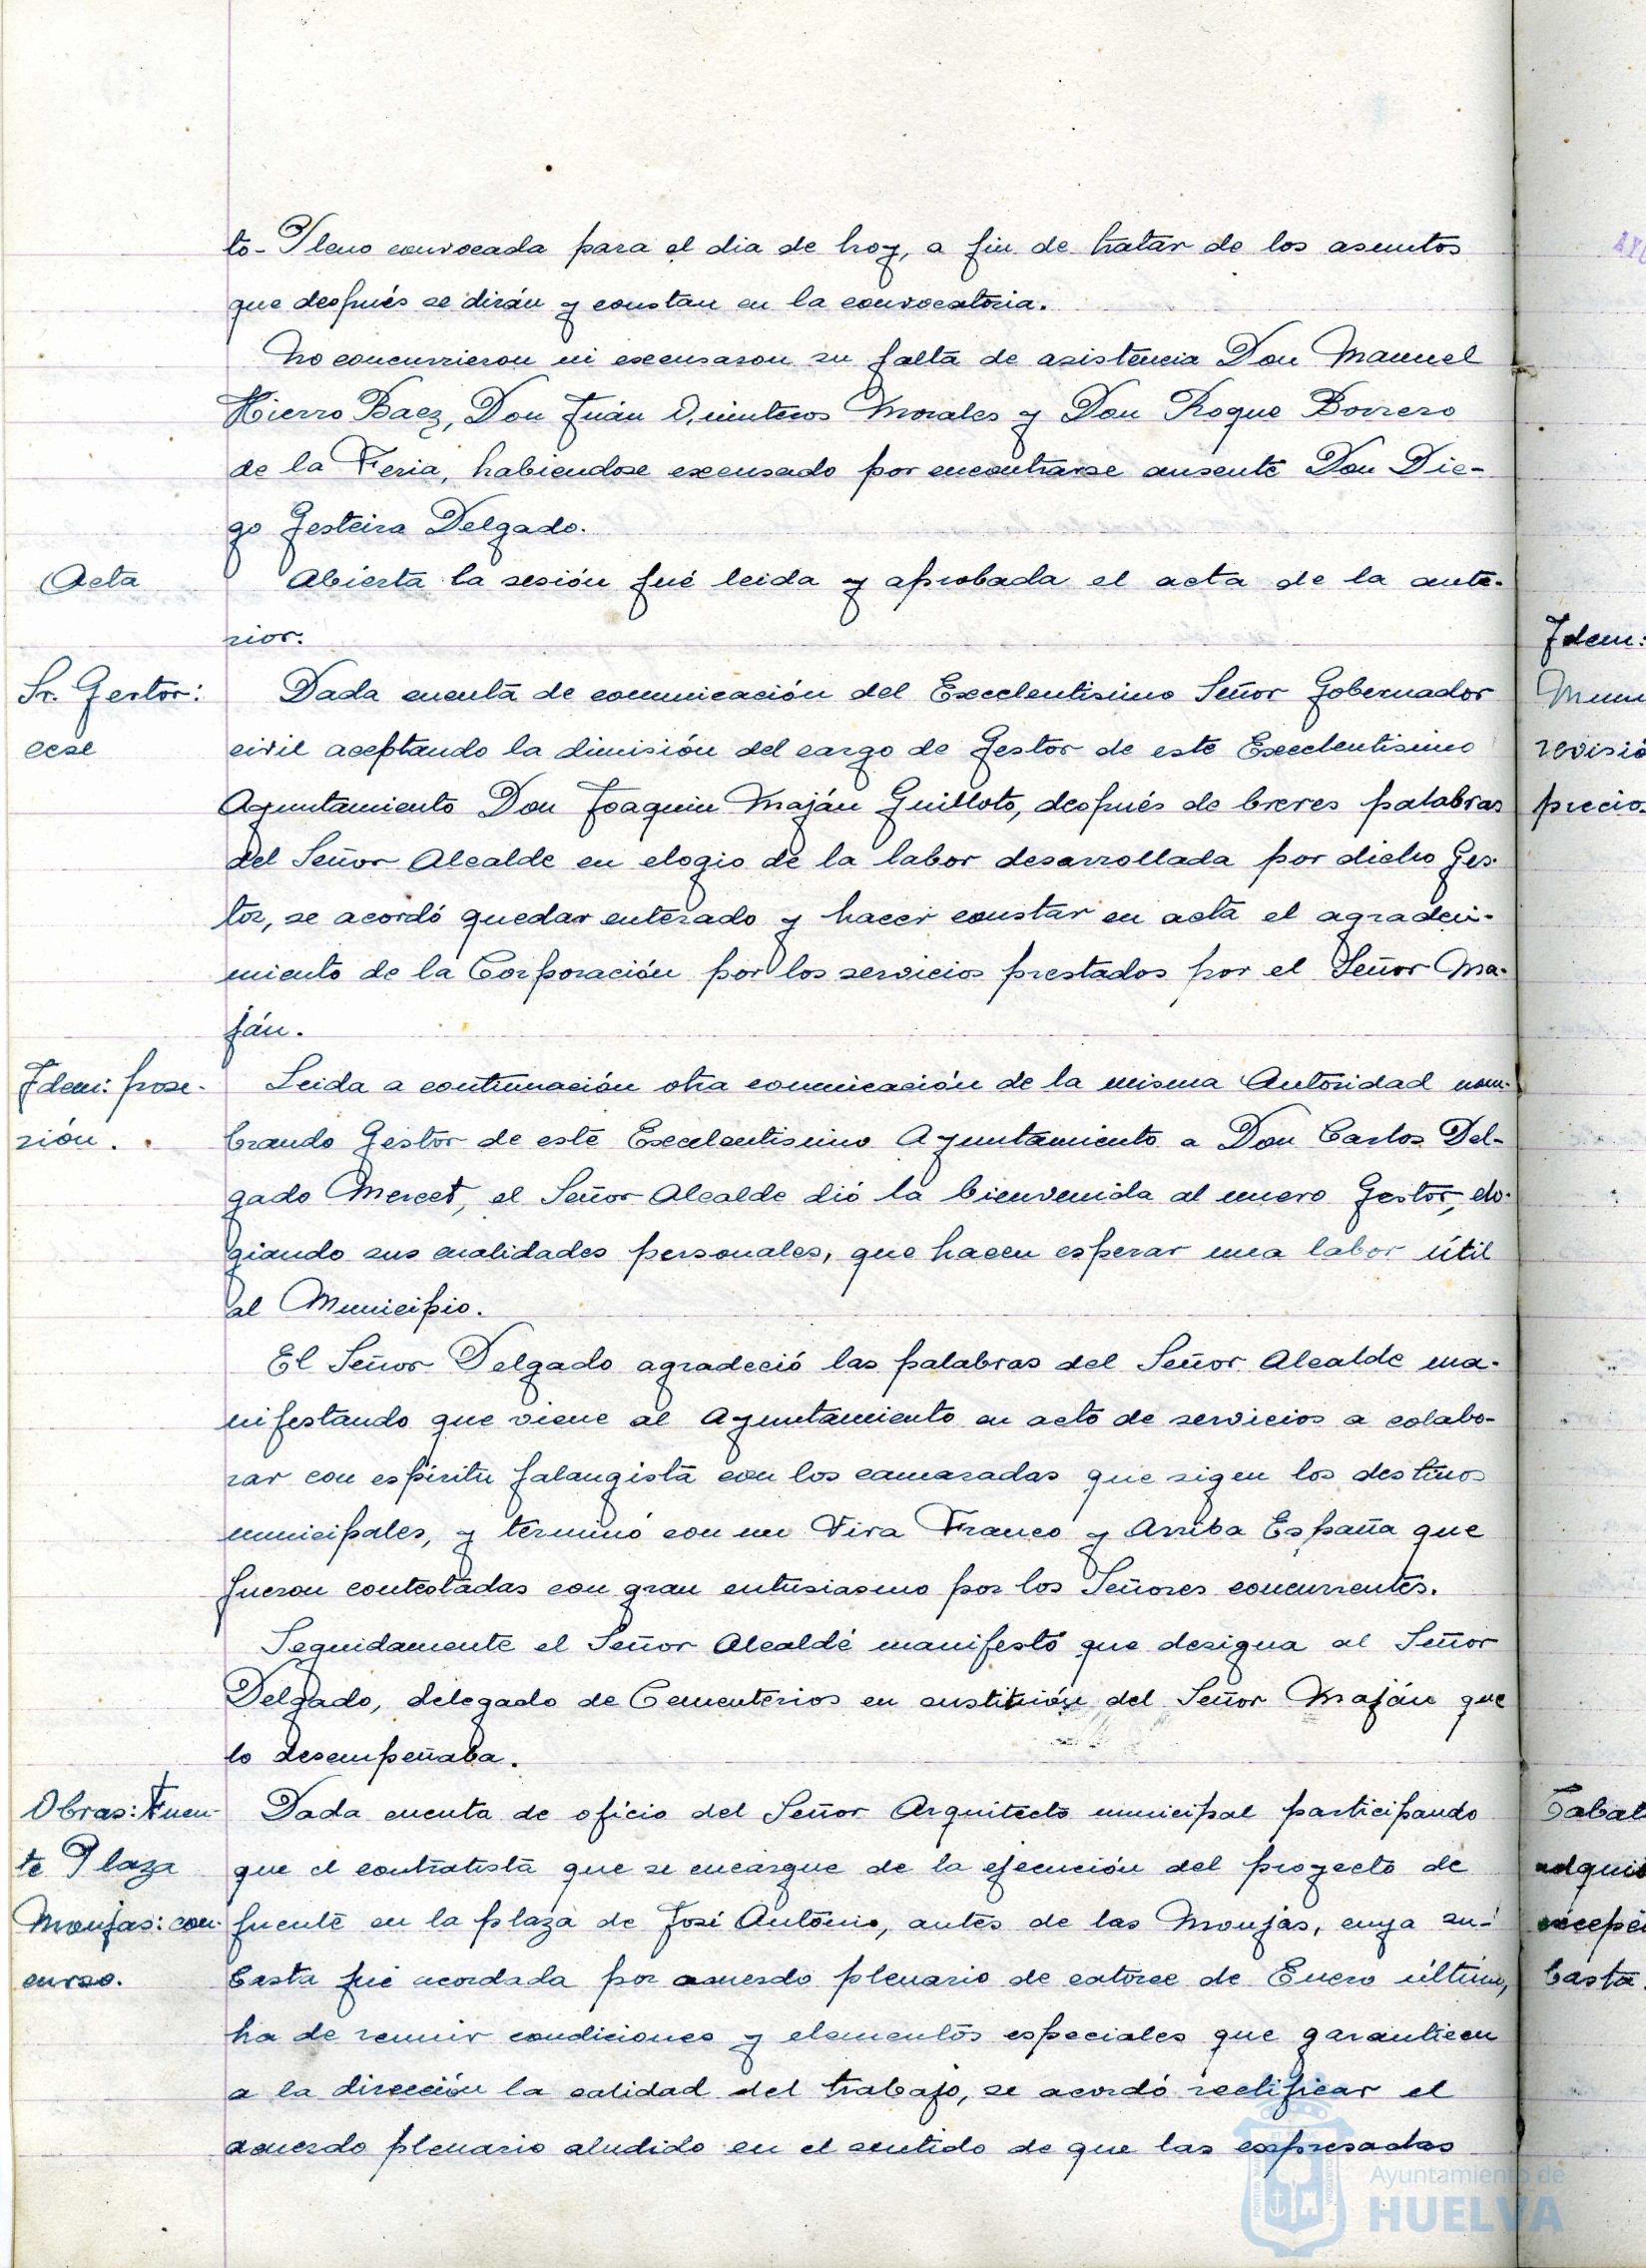 to-Pleno convocada para el dia de hoy, a fin de tratar de los asuntos
que después se dirán y constan en la convocatoria.
No concurrieron ni excusaron su falta de asistencia Don Manuel
Hierro Baez, Don Juán Quinteros Morales y Don Roque Borrero
de la Feria, habiendose excusado por encontrarse ausente Don Die-
go Gesteira Delgado.
Acta
Abierta la sesión fué leida y aprobada el acta de la ante-
rior.
Sr. Gestor:
cese
Dada cuenta de comunicación del Excelentisimo Señor Gobernador
civil aceptando la dimisión del cargo de Gestor de este Excelentisimo
Ayuntamiento Don Joaquin Maján Guilloto, después de breves palabras
del Señor Alcalde en elogio de la labor desarrollada por dicho Ges-
tor, se acordó quedar enterado y hacer constar en acta el agradeci-
miento de la Corporación por los servicios prestados por el Señor Ma-
ján.
Idem: pose-
sión.
Leida a continuación otra comunicación de la misma Autoridad nom-
brando Gestor de este Excelentisimo Ayuntamiento a Don Carlos Del-
gado Mercet, el Señor Alcalde dió la bienvenida al nuevo Gestor, elo-
giando sus cualidades personales, que hacen esperar una labor útil
al Municipio.
El Señor Delgado agradeció las palabras del Señor Alcalde ma-
nifestando que viene al Ayuntamiento en acto de servicios a colabo-
rar con espiritu falangista con los camaradas que rigen los destinos
municipales, y terminó con un Viva Franco y Arriba España que
fueron contestadas con gran entusiasmo por los Señores concurrentes.
Seguidamente el Señor Alcalde manifestó que designa al Señor
Delgado, delegado de Cementerios en sustitución del Señor Maján que
lo desempeñaba.
Obras: Fuen-
te Plaza
Monjas: con-
curso.
Dada cuenta de oficio del Señor Arquitecto municipal participando
que el contratista que se encargue de la ejecución del proyecto de
fuente en la plaza de José Antonio, antes de las Monjas, cuya su-
basta fué acordada por acuerdo plenario de catorce de Enero último,
ha de reunir condiciones y elementos especiales que garanticen
a la dirección la calidad del trabajo, se acordó rectificar el
acuerdo plenario aludido en el sentido de que las expresadas
Idem:
Muni
revisió
precios
adquis
excepci
basta.
Ayuntamiento de
HUELVA